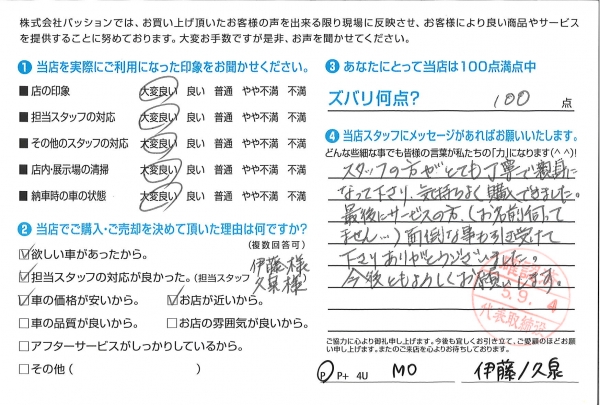 株式会社パッションでは、お買い上げ頂いたお客様の声を出来る限り現場に反映させ、お客様により良い商品やサービス
を提供することに努めております。大変お手数ですが是非、お声を聞かせてください。
1 当店を実際にご利用になった印象をお聞かせください。
■ 店の印象 大変良い 良い 普通 やや不満 不満
■ 担当スタッフの対応 大変良い 良い 普通 やや不満 不満
■ その他のスタッフの対応 大変良い 良い 普通 やや不満 不満
■ 店内・展示場の清掃 大変良い 良い 普通 やや不満 不満
■ 納車時の車の状態 大変良い 良い 普通 やや不満 不満
2 当店でご購入・ご売却を決めて頂いた理由は何ですか?
(複数回答可)
☑欲しい車があったから。
☑担当スタッフの対応が良かった。(担当スタッフ 伊藤様
久泉様)
☑車の価格が安いから。 ☑お店が近いから。
□車の品質が良いから。 □お店の雰囲気が良いから。
□アフターサービスがしっかりしているから。
□その他( )
3 あなたにとって当店は100点満点中
ズバリ何点? 100 点
4 当店スタッフにメッセージがあればお願いいたします。
どんな些細な事でも皆様の言葉が私たちの「力」になります(^^)!
スタッフの方がとても丁寧で親身に
なって下さり、気持ちよく購入できました。
最後にサービスの方、(お名前伺って
ません…)面倒な事も引き受けて
下さりありがとうございました。
今後ともよろしくお願いします。
5.9.4
代表取締役
ご協力に心より御礼申し上げます。今後も宜しくお引き立て、ご愛顧のほどお願
い申し上げます。またのご来店を心よりお待ちしております。
P P+ 4U MO 伊藤/久泉